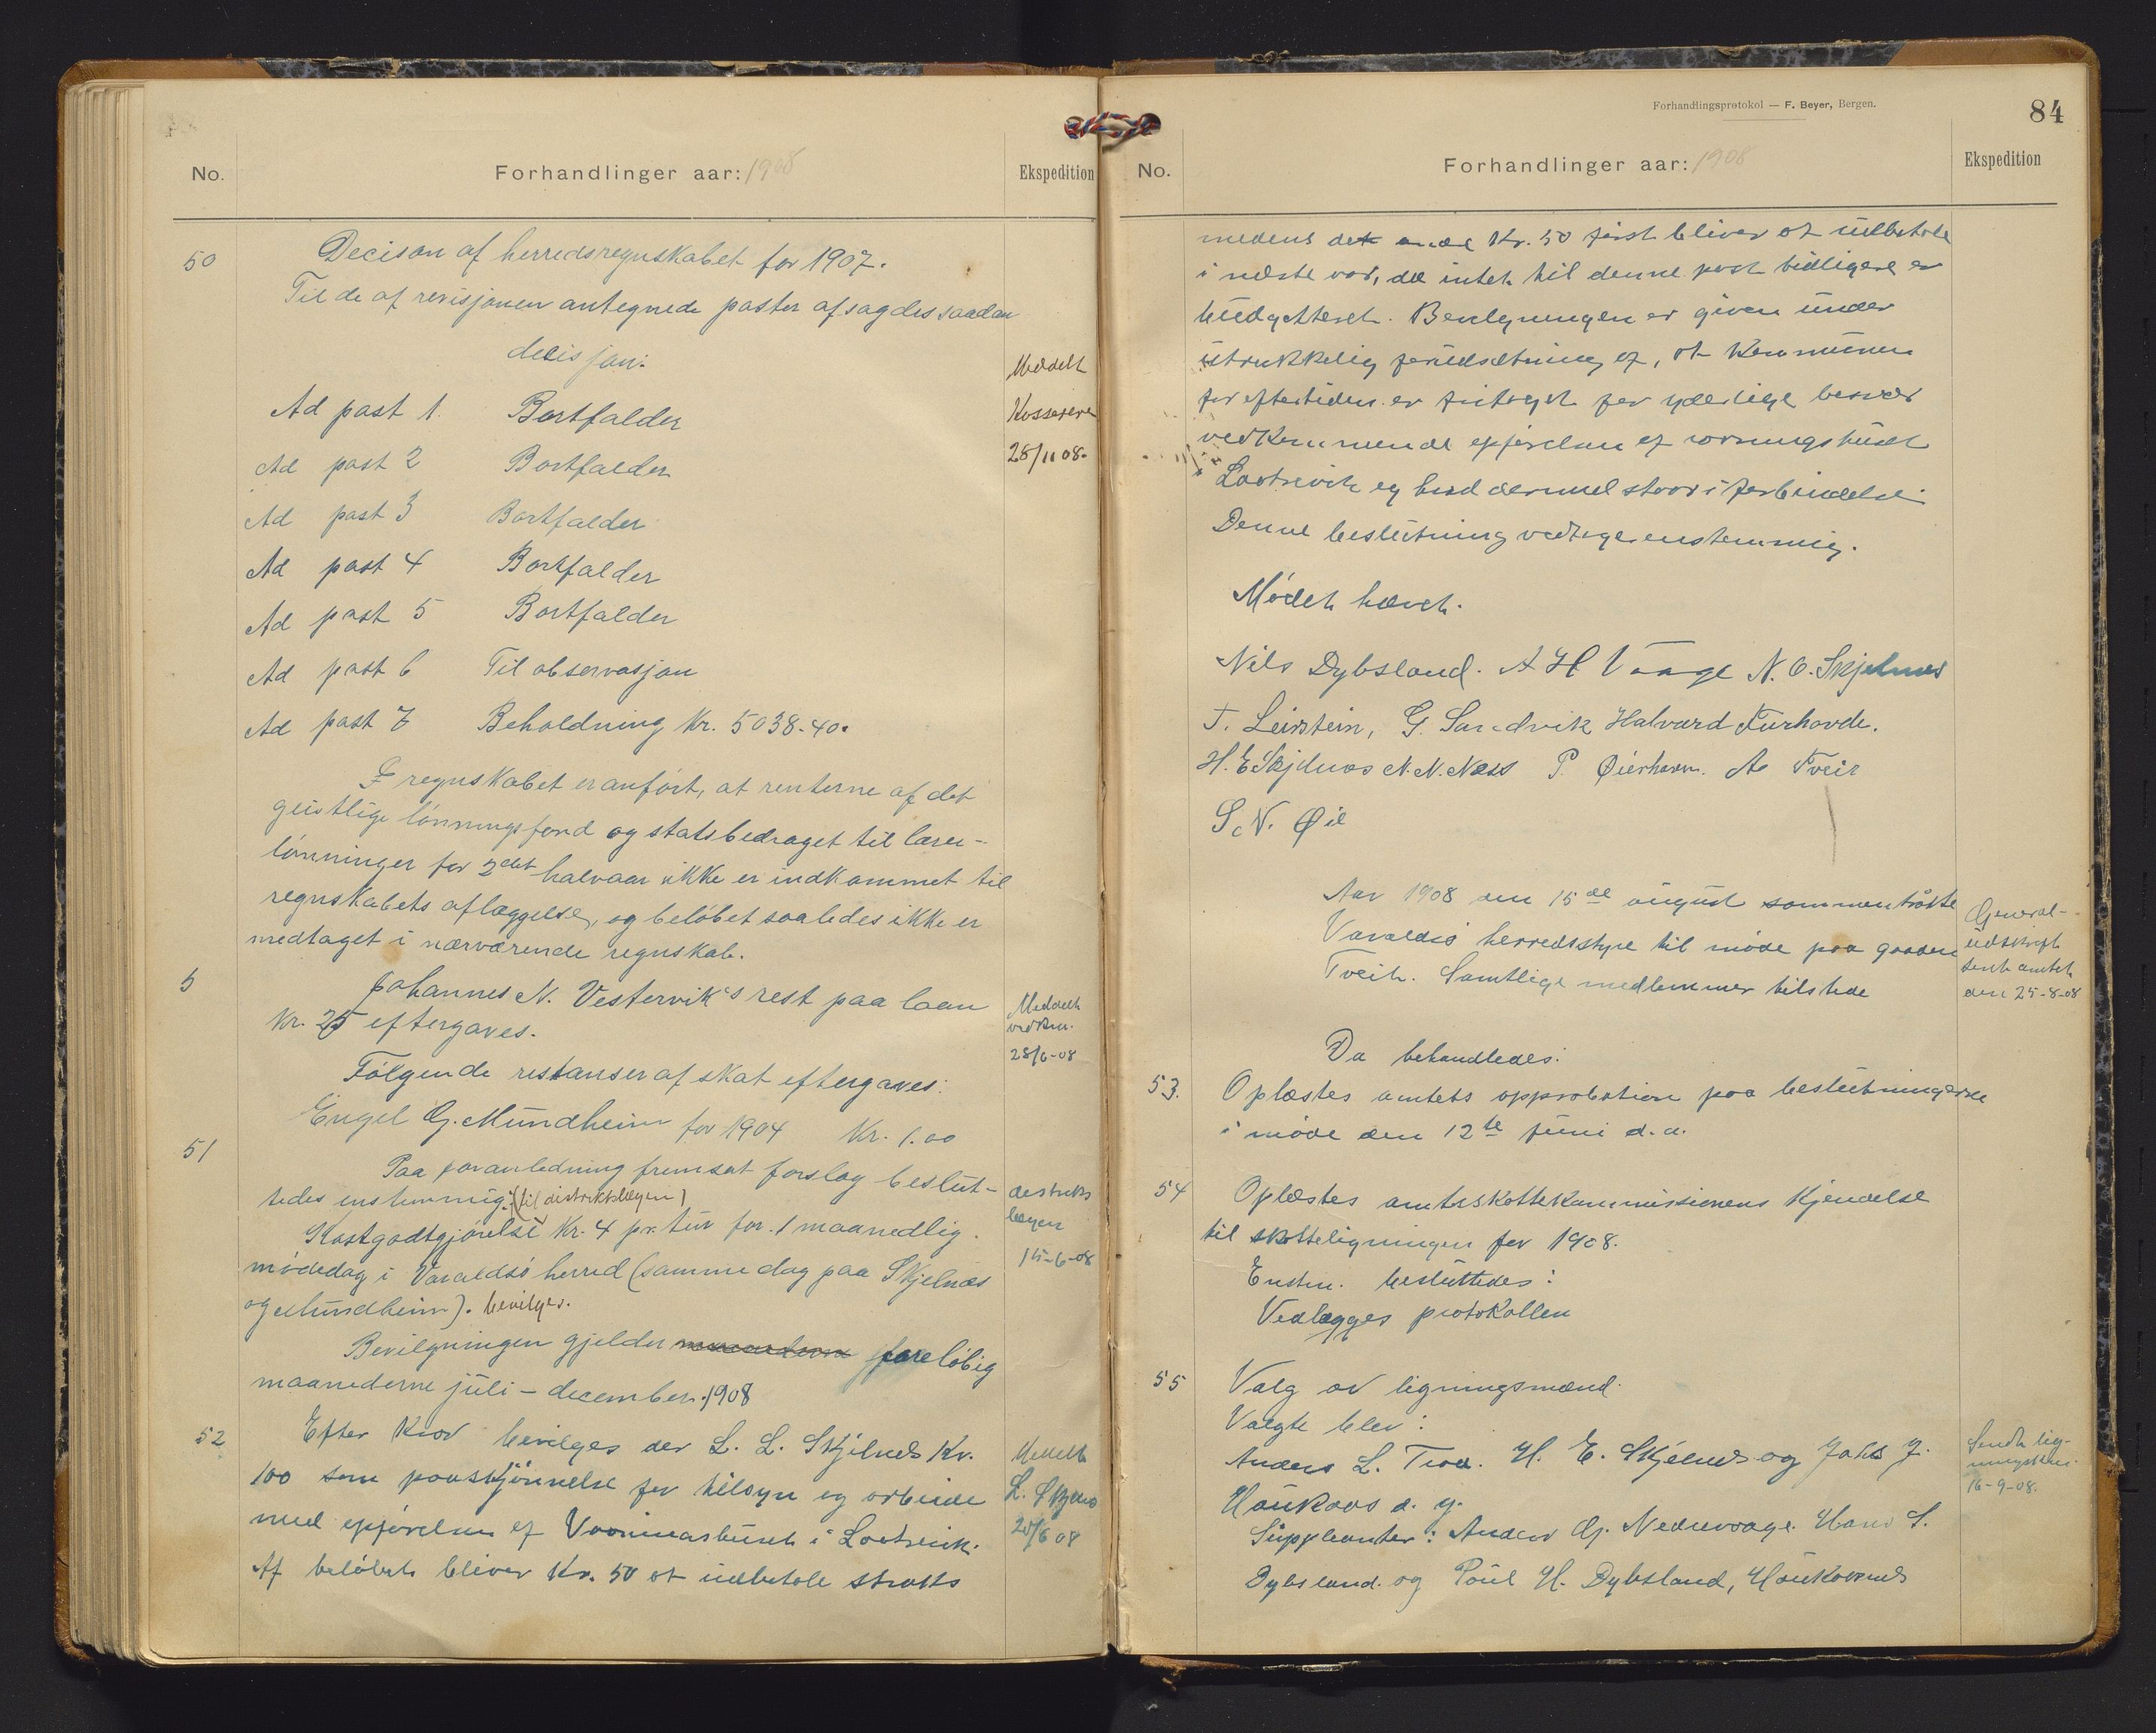 No.
Forhandlinger aar: 1908
Ekspedition
50
Decision af herredsregnskabet for 1907.
Til de af revisjonen antegnede poster afsagdes saadan
decisjon:
Ad post 1. Bortfalder
Ad post 2 Bortfalder
Ad post 3 Bortfalder
Ad post 4 Bortfalder
Ad post 5 Bortfalder
Ad post 6 Til observasjon
Ad post 7 Beholdning Kr. 5038.40.
Meddelt
Kassereren
28/11 08.
I regnskabet er anført, at renterne af det
geistlige lønningsfond og statsbedraget til lærer-
lønninger for 2det halvaar ikke er indkommet til
regnskabets aflæggelse, og beløbet saaledes ikke er
medtaget i nærværende regnskab.
5
Johannes N. Vestervik's rest paa laan
kr. 25 eftergaves.
Meddelt
vedkm.
28/6-08
Følgende restanser af skat eftergaves:
Engel G. Mundheim for 1904 Kr. 1.00
51
Paa foranledning fremsat forslag beslut-
tedes enstemmig: (til distriktslægen)
Kostgodtgjørelse Kr. 4 pr. tur for 1 maanedlig
mødedag i Varaldsø herred (samme dag paa Skjelnæs
og Mundheim). bevilges.
Bevilgningen gjelder foreløbig
maanederne juli - december 1908
destrikts
lægen
15-6-08
52
Efter krav bevilges der L. L. Skjelnes Kr.
100 som paaskjønnelse for tilsyn og arbeide
med opførelsen af Vaaningshuset i Laatrevik.
Af beløbet bliver Kr. 50 at udbetale straks
Meddelt
L. Skjelnæs
20/6 08
Forhandlingsprotokol — F. Beyer, Bergen.
84
No.
Forhandlinger aar: 1908
Ekspedition
medens det andre Kr. 50 først bliver at udbetale
i næste aar, da intet til denne post tidligere er
budgetteret. Bevilgningen er given under
utrukkelig forudsætning af, at kommunen
for eftertiden er fritaget for yderlige besvær
vedkommende opførelsen af vaaningshuset
i Laatrevik og hvad dermed staar i forbindelse.
Denne beslutning vedtages enstemmig.
Mødet hævet.
Nils Dybsland. A H Vaage N. O. Skjelnes
T. Leirstein, G. Sandvik Halvard Furhovde.
H. E Skjelnæs N. N. Næss P. Øierhavn. A. Tveit
S. N. Øie
Aar 1908 den 15de august sammentraadte
Varaldsø herredsstyre til møde paa gaarden
Tveit. Samtlige medlemmer tilstede
General-
udskrift
sendt amtet
den 25-8-08
Da behandledes:
53.
Oplæstes amtets approbation paa beslutningerne
i møde den 12te juni d. a.
54
Oplæstes amtsskattekommissionens kjendelse
til skatteligningen for 1908.
Enstm. besluttedes:
Vedlægges protokollen
55
Valg av ligningsmænd.
Valgte blev:
Anders L. Tvea. H. E. Skjelnes og Jakob J.
Haukaas d. y.
Suppleanter: Anders G. Nedrevaage. Hans S.
Dybsland. og Poul H. Dybsland, Haukaasnes
Sendt lig-
ningskom.
16-9-08.